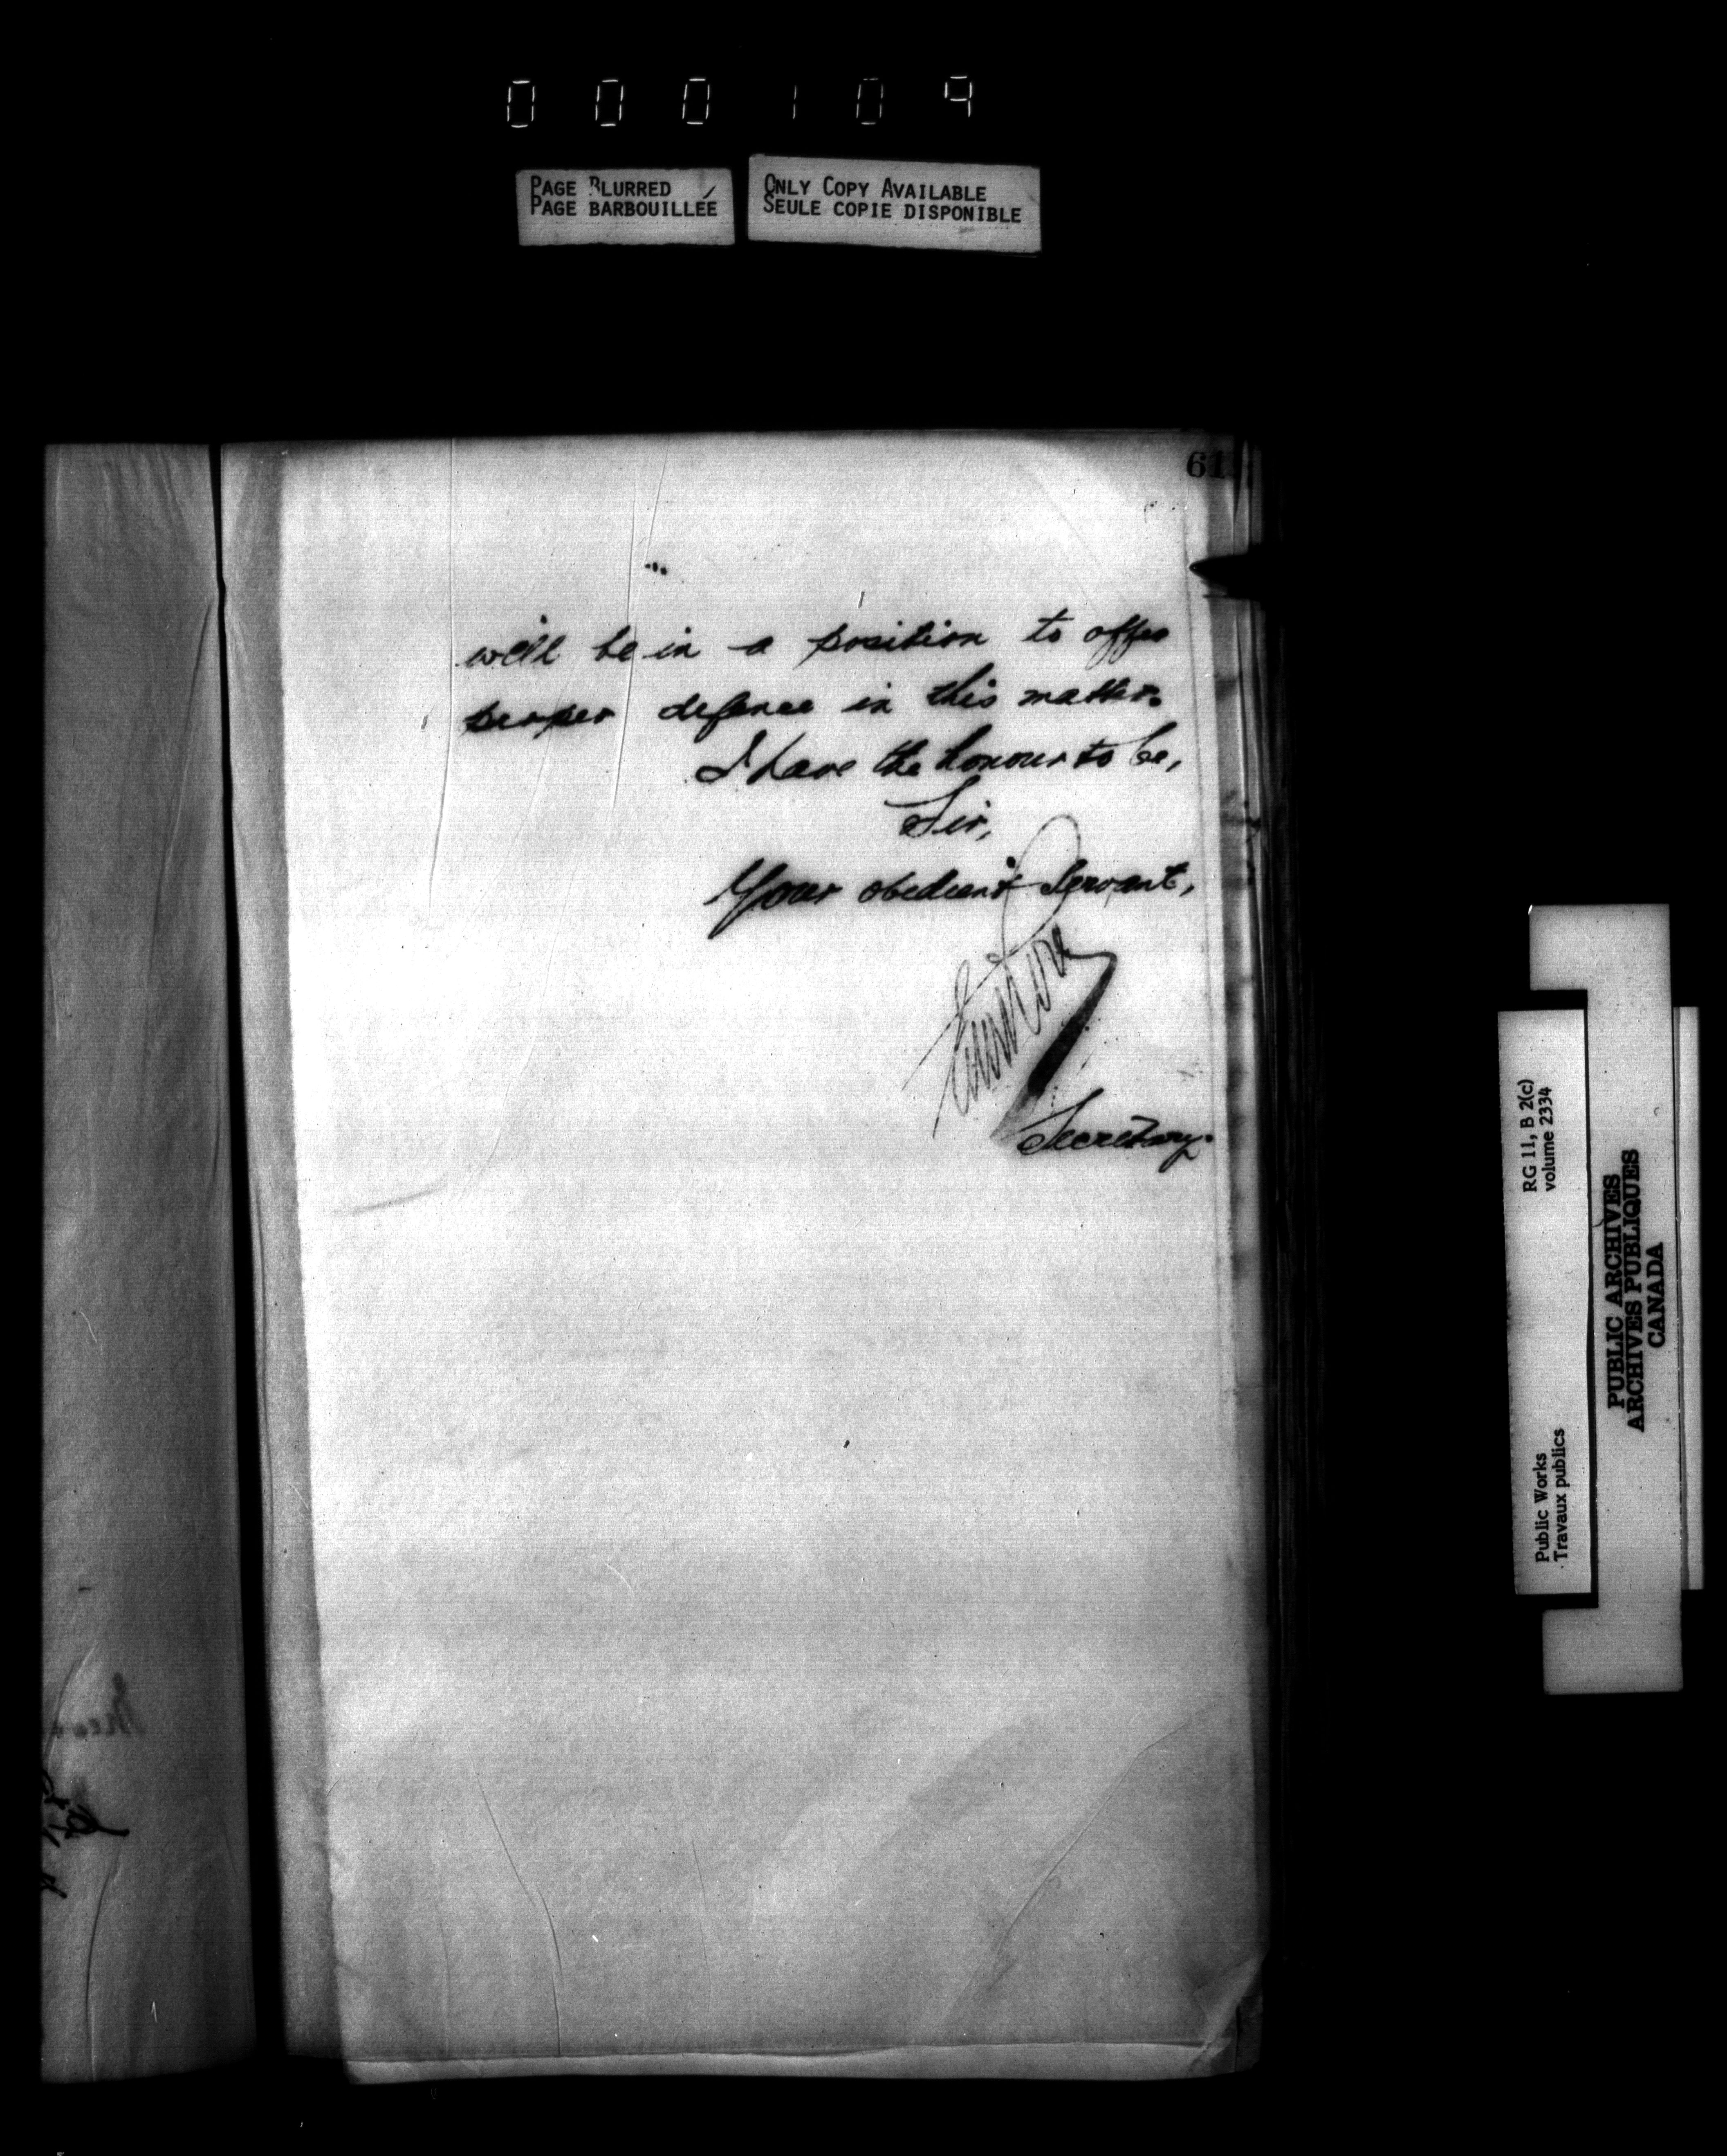 000109
PAGE BLURRED
PAGE BARBOUILLÉE
ONLY COPY AVAILABLE
SEULE COPIE DISPONIBLE
61
will be in a position to offer
proper defence in this matter.
I have the honour to be,
Sir,
Your obedient Servant,
Secretary.
RG 11, B 2(c)
volume 2334
Public Works
Travaux publics
PUBLIC ARCHIVES
ARCHIVES PUBLIQUES
CANADA